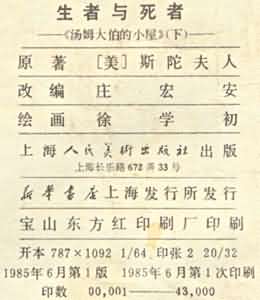 生者与死者
——《汤姆大伯的小屋》(下)——
原著 [美]斯陀夫人
改编 庄宏安
绘画 徐学初
上海人民美术出版社出版
上海长乐路672弄33号
新华书店上海发行所发行
宝山东方红印刷厂印刷
开本 787×1092 1/64 印张 2 20/32
1985年6月第1版 1985年6月第1次印刷
印数 00,001——43,000